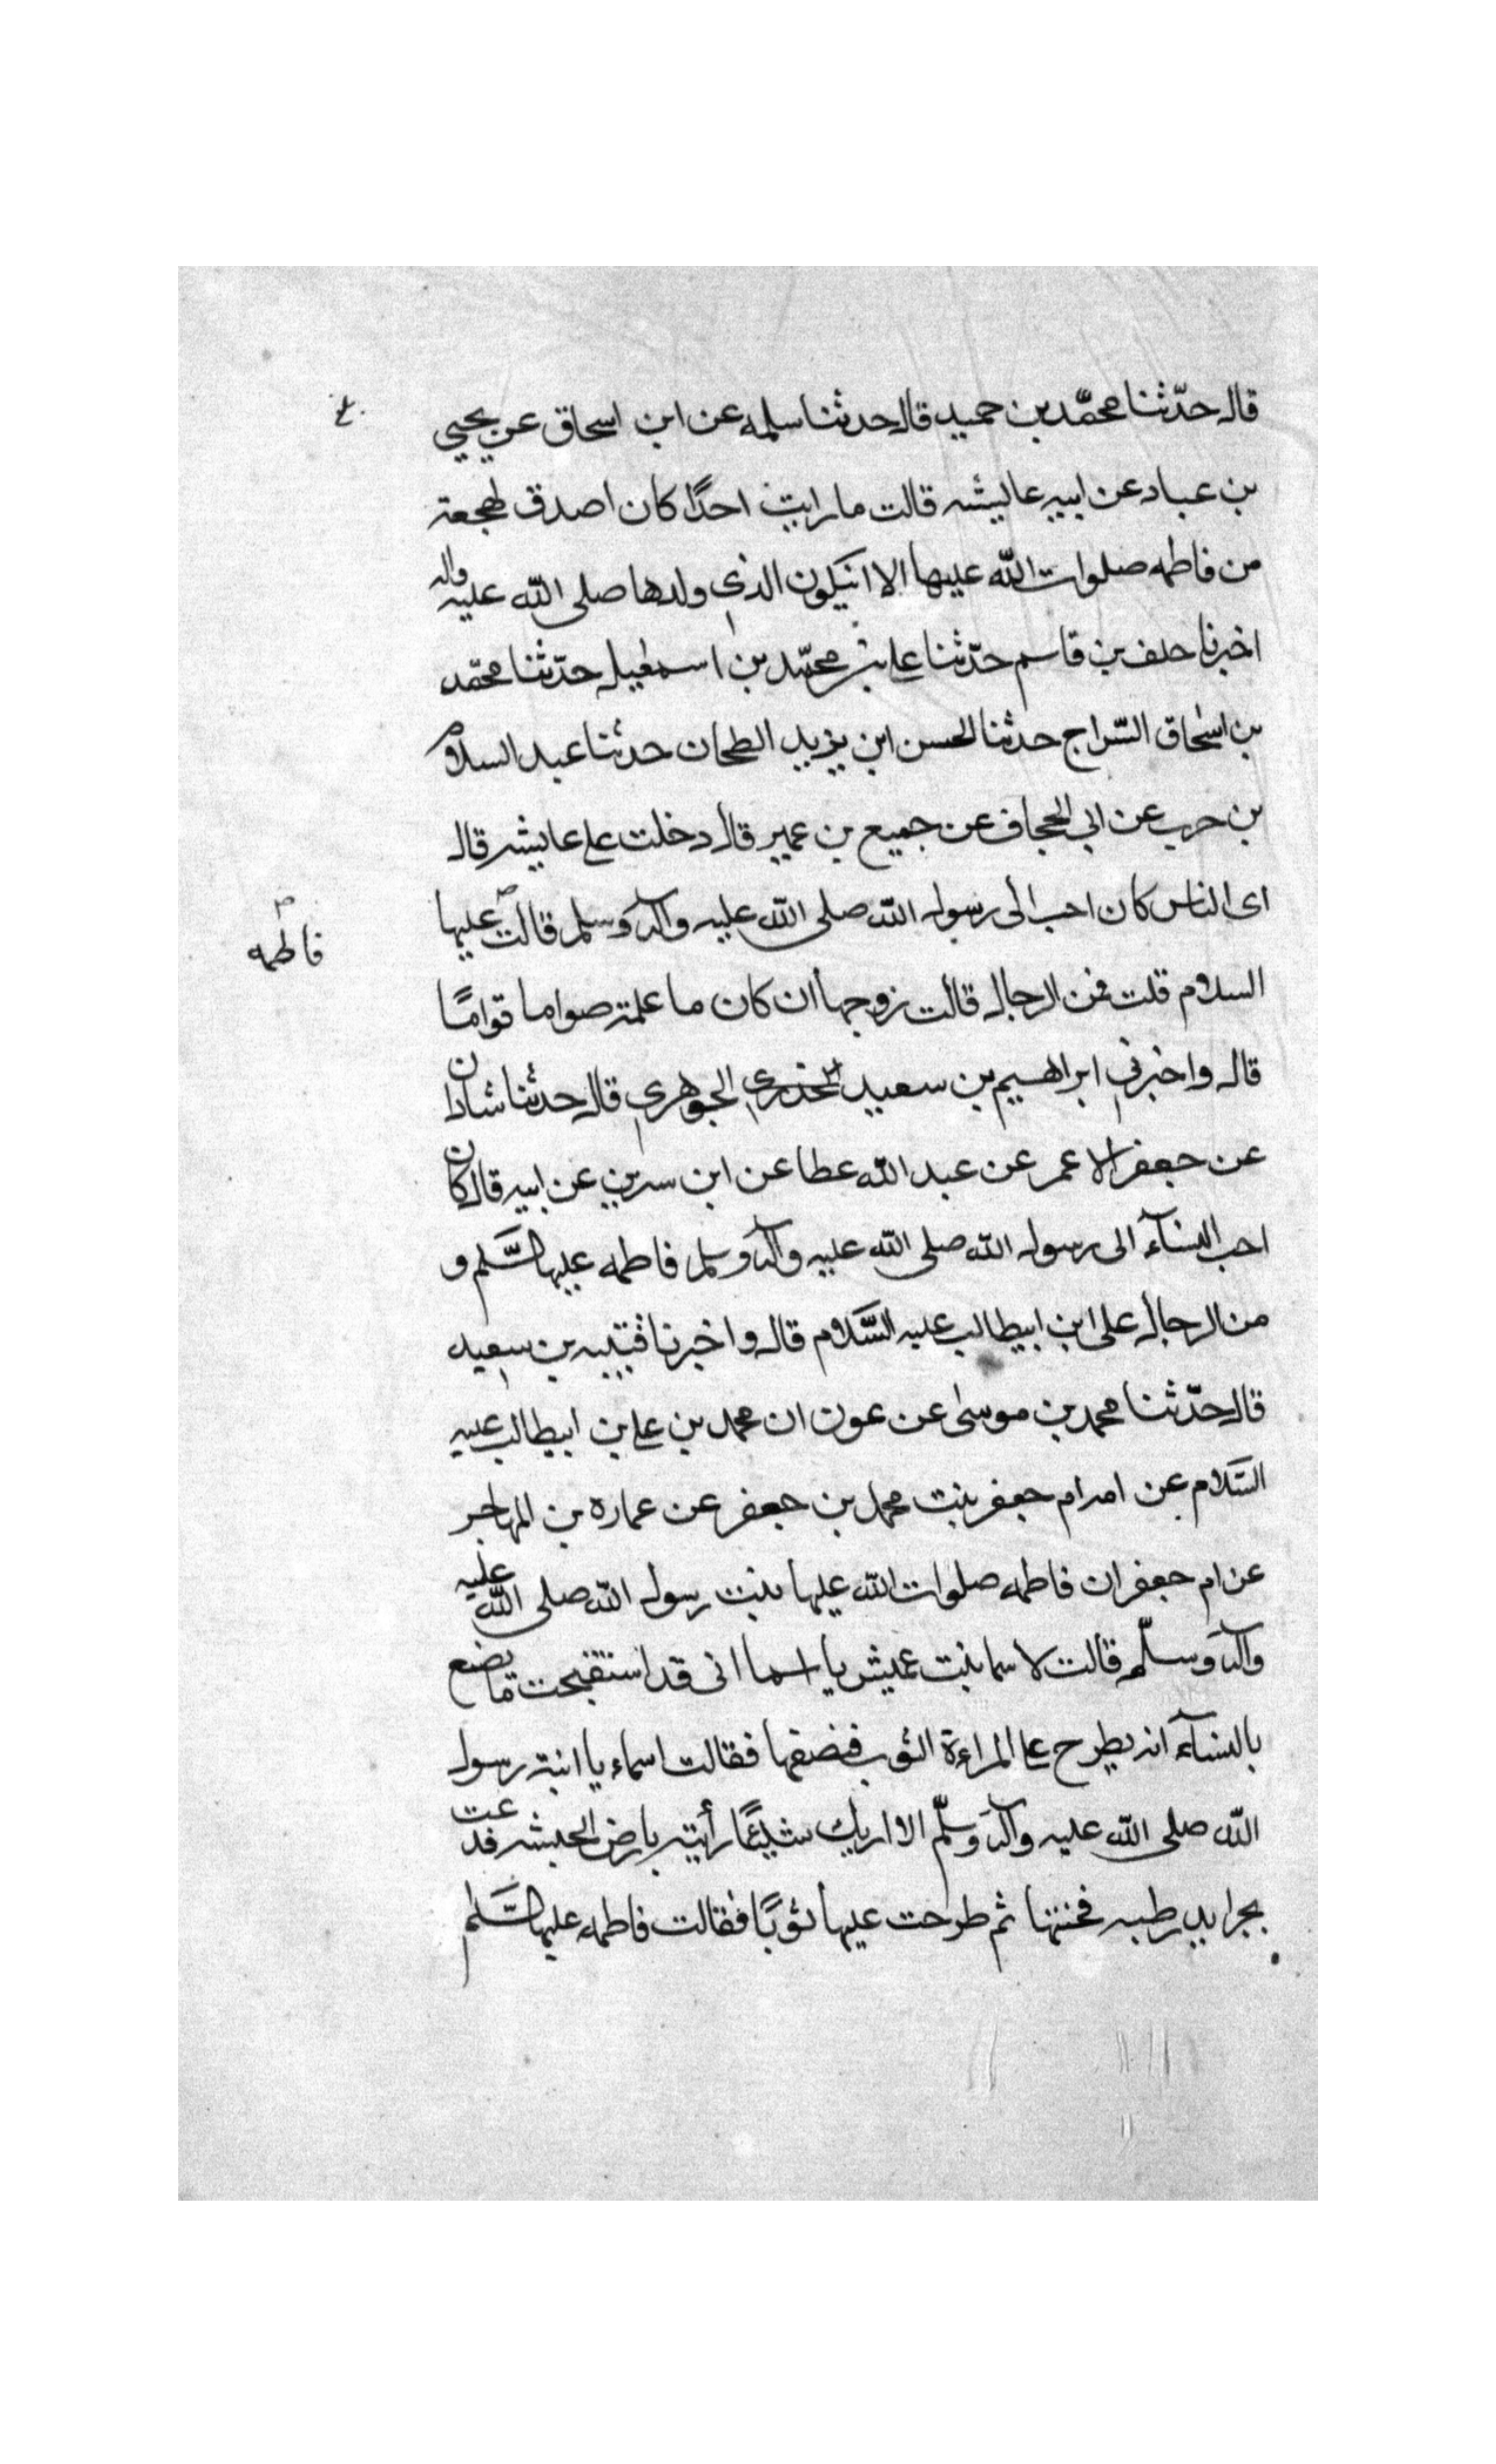 قال حدّثنا محمّد بن حميد قال حدثنا سلمه عن ابن اسحاق عن يحيي
بن عباد عن ابيه عاليشه قالت ما رايت احدًا كان اصدق لهجعة
من فاطمه صلوات اللّه عليها الا انيكون الذي ولدها صلى اللّه عليه واله
اخبرنا خلف بن قاسم حدّثنا على بن محمّد بن اسمعيل حدّثنا محمّد
بن اسحاق السّراج حدثنا الحسن ابن يزيد الطحان حدثنا عبد السلام
بن حرب عن ابي الحجاف عن جميع بن عمير قال دخلت على عايشه قال
اى الناس كان احب الى رسول اللّه صلى اللّه عليه وآله وسلم قالت عليها
فاطمه
السلام قلت فمن الرجال قالت زوجها ان كان ما علمته صواما قوامًا
قال واخبرني ابراهيم بن سعيد الخدري الجوهري قال حدثنا شاذان
عن جعفر الاعمر عن عبد اللّه عطا عن ابن سرين عن ابيه قال كان
احب النسآء الى رسول اللّه صلى اللّه عليه وآله وسلم فاطمه عليها السَّلم و
من الرجال على ابن ابيطالب عليه السَّلام قال واخبرنا قتيبه بن سعيد
قال حدّثنا محمد بن موسى عن عون ان محمد بن على بن ابيطالب عليه
السّلام عن امه ام جعفر بنت محمد بن جعفر عن عماره بن المهاجر
عن ام جعفر ان فاطمه صلوات اللّه عليها بنت رسول اللّه صلى اللّه عليه
وآله وسلّم قالت لاسما بنت عميش يا اسما انى قد استقبحت ما يضع
بالنسآء انه يطرح على المراءة الثوب فيضفها فقالت اسماء يا ابنة رسول
اللّه صلى اللّه عليه وآله وسلّم الا اريك شيئًا رأيته بارض الحبشه فدعت
بجرايد رطبه فحنتها ثم طرحت عليها ثوبًا فقالت فاطمه عليها السَّلم